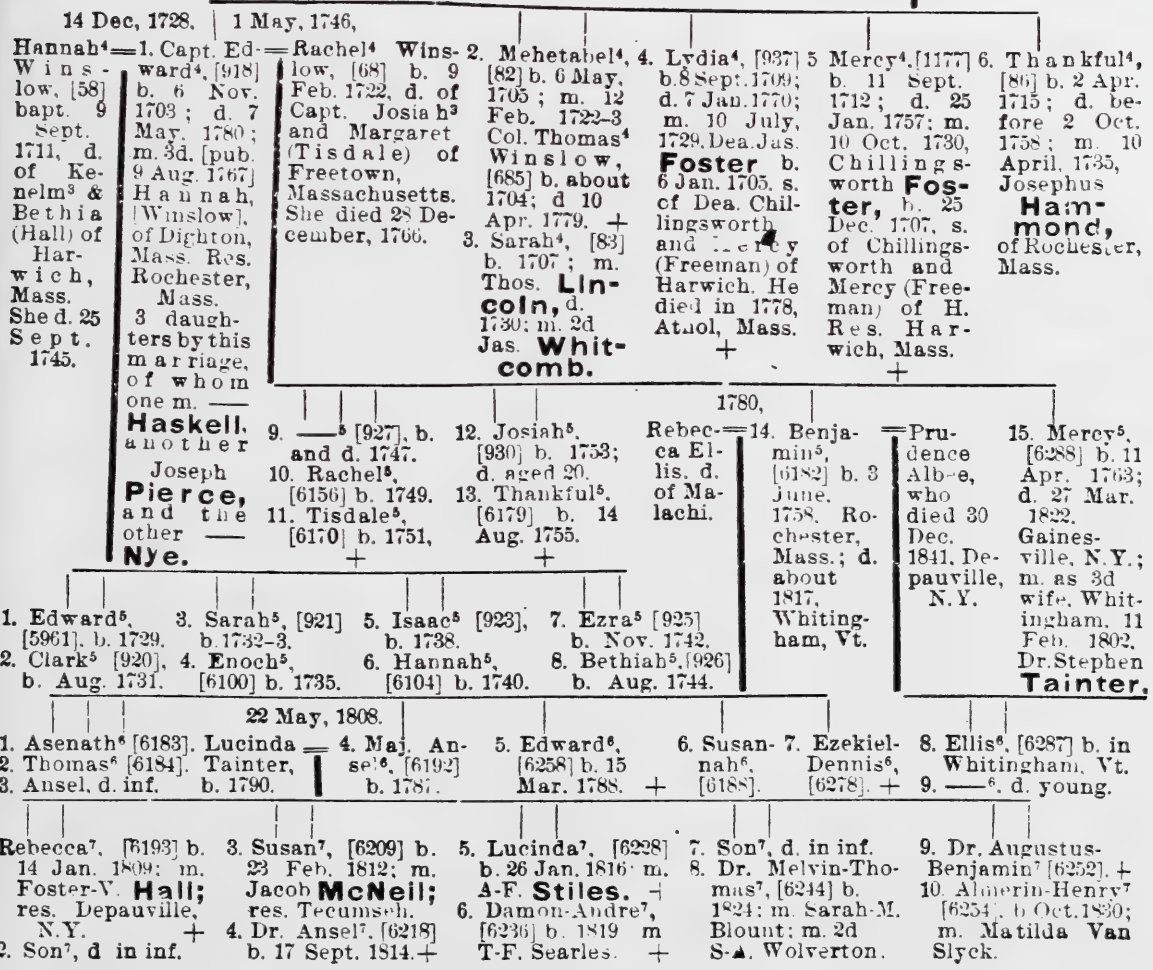 14 Dec, 1728.
1 May, 1746,
Hannah⁴
Wins-
low, [58]
bapt. 9
Sept.
1711, d.
of Ke-
nelm³ &
Bethia
(Hall) of
Har-
wich,
Mass.
She d. 25
Sept.
1745.
=1. Capt. Ed-
ward⁴, [918]
b. 6 Nov.
1703; d. 7
May, 1780;
m. 3d. [pub.
9 Aug. 1767]
Hannah,
[Winslow],
of Dighton,
Mass. Res.
Rochester,
Mass.
3 daugh-
ters by this
marriage,
of whom
one m. —
Haskell,
another
Joseph
Pierce,
and the
other —
Nye.
=Rachel⁴ Wins-
low, [68] b. 9
Feb. 1722, d. of
Capt. Josiah³
and Margaret
(Tisdale) of
Freetown,
Massachusetts.
She died 28 De-
cember, 1766.
2. Mehetabel⁴,
[82] b. 6 May,
1705; m. 12
Feb. 1722-3
Col. Thomas⁴
Winslow,
[685] b. about
1704; d 10
Apr. 1779. +
3. Sarah⁴, [83]
b. 1707; m.
Thos. Lin-
coln, d.
1730; m. 2d
Jas. Whit-
comb.
4. Lydia⁴, [937]
b. 8 Sept. 1709;
d. 7 Jan. 1770;
m. 10 July,
1729, Dea. Jas.
Foster b.
6 Jan. 1705, s.
of Dea. Chil-
lingsworth
and
(Freeman) of
Harwich. He
died in 1778,
Athol, Mass.
+
5 Mercy⁴, [1177]
b. 11 Sept.
1712; d. 25
Jan. 1757; m.
10 Oct. 1730,
Chillings-
worth Fos-
ter, b. 25
Dec. 1707, s.
of Chillings-
worth and
Mercy (Free-
man) of H.
Res. Har-
wich, Mass.
+
6. Thankful⁴,
[86] b. 2 Apr.
1715; d. be-
fore 2 Oct.
1758; m. 10
April, 1735,
Josephus
Ham-
mond,
of Rochester,
Mass.
9. —⁵ [927], b.
and d. 1747.
10. Rachel⁵,
[6156] b. 1749.
11. Tisdale⁵,
[6170] b. 1751,
+
12. Josiah⁵,
[930] b. 1753;
d. aged 20.
13. Thankful⁵.
[6179] b. 14
Aug. 1755.
+
1780,
Rebec-
ca El-
lis, d.
of Ma-
lachi.
=14. Benja-
min⁵,
[6182] b. 3
June,
1758, Ro-
chester,
Mass.; d.
about
1817,
Whiting-
ham, Vt.
=Pru-
dence
Albee,
who
died 30
Dec.
1841, De-
pauville,
N.Y.
15. Mercy⁵,
[6288] b. 11
Apr. 1763;
d. 27 Mar.
1822,
Gaines-
ville, N.Y.;
m. as 3d
wife, Whit-
ingham, 11
Feb. 1802,
Dr. Stephen
Tainter.
1. Edward⁵,
[5961], b. 1729.
2. Clark⁵ [920],
b. Aug. 1731.
3. Sarah⁵, [921]
b. 1732-3.
4. Enoch⁵,
[6100] b. 1735.
5. Isaac⁵ [923],
b. 1738.
6. Hannah⁵,
[6104] b. 1740.
7. Ezra⁵ [925]
b. Nov. 1742.
8. Bethiah⁵, [926]
b. Aug. 1744.
22 May, 1808.
1. Asenath⁶ [6183].
2. Thomas⁶ [6184].
3. Ansel, d. inf.
Lucinda
Tainter,
b. 1790.
= 4. Maj. An-
sel⁶, [6192]
b. 1787.
5. Edward⁶,
[6258] b. 15
Mar. 1788. +
6. Susan-
nah⁶,
[6188].
7. Ezekiel-
Dennis⁶,
[6278]. +
8. Ellis⁶, [6287] b. in
Whitingham, Vt.
9. —⁶, d. young.
Rebecca⁷, [6193] b.
14 Jan. 1809; m.
Foster-V. Hall;
res. Depauville,
N.Y. +
2. Son⁷, d in inf.
3. Susan⁷, [6209] b.
23 Feb. 1812; m.
Jacob McNeil;
res. Tecumseh.
4. Dr. Ansel⁷, [6218]
b. 17 Sept. 1814. +
5. Lucinda⁷, [6228]
b. 26 Jan. 1816; m.
A-F. Stiles. +
6. Damon-Andre⁷,
[6236] b. 1819 m
T-F. Searles. +
7. Son⁷, d. in inf.
8. Dr. Melvin-Tho-
mas⁷, [6244] b.
1824; m. Sarah-M.
Blount; m. 2d
Wolverton.
9. Dr. Augustus-
Benjamin⁷ [6252]. +
10. Almerin-Henry⁷
[6254], b Oct. 1830;
m. Matilda Van
Slyck.